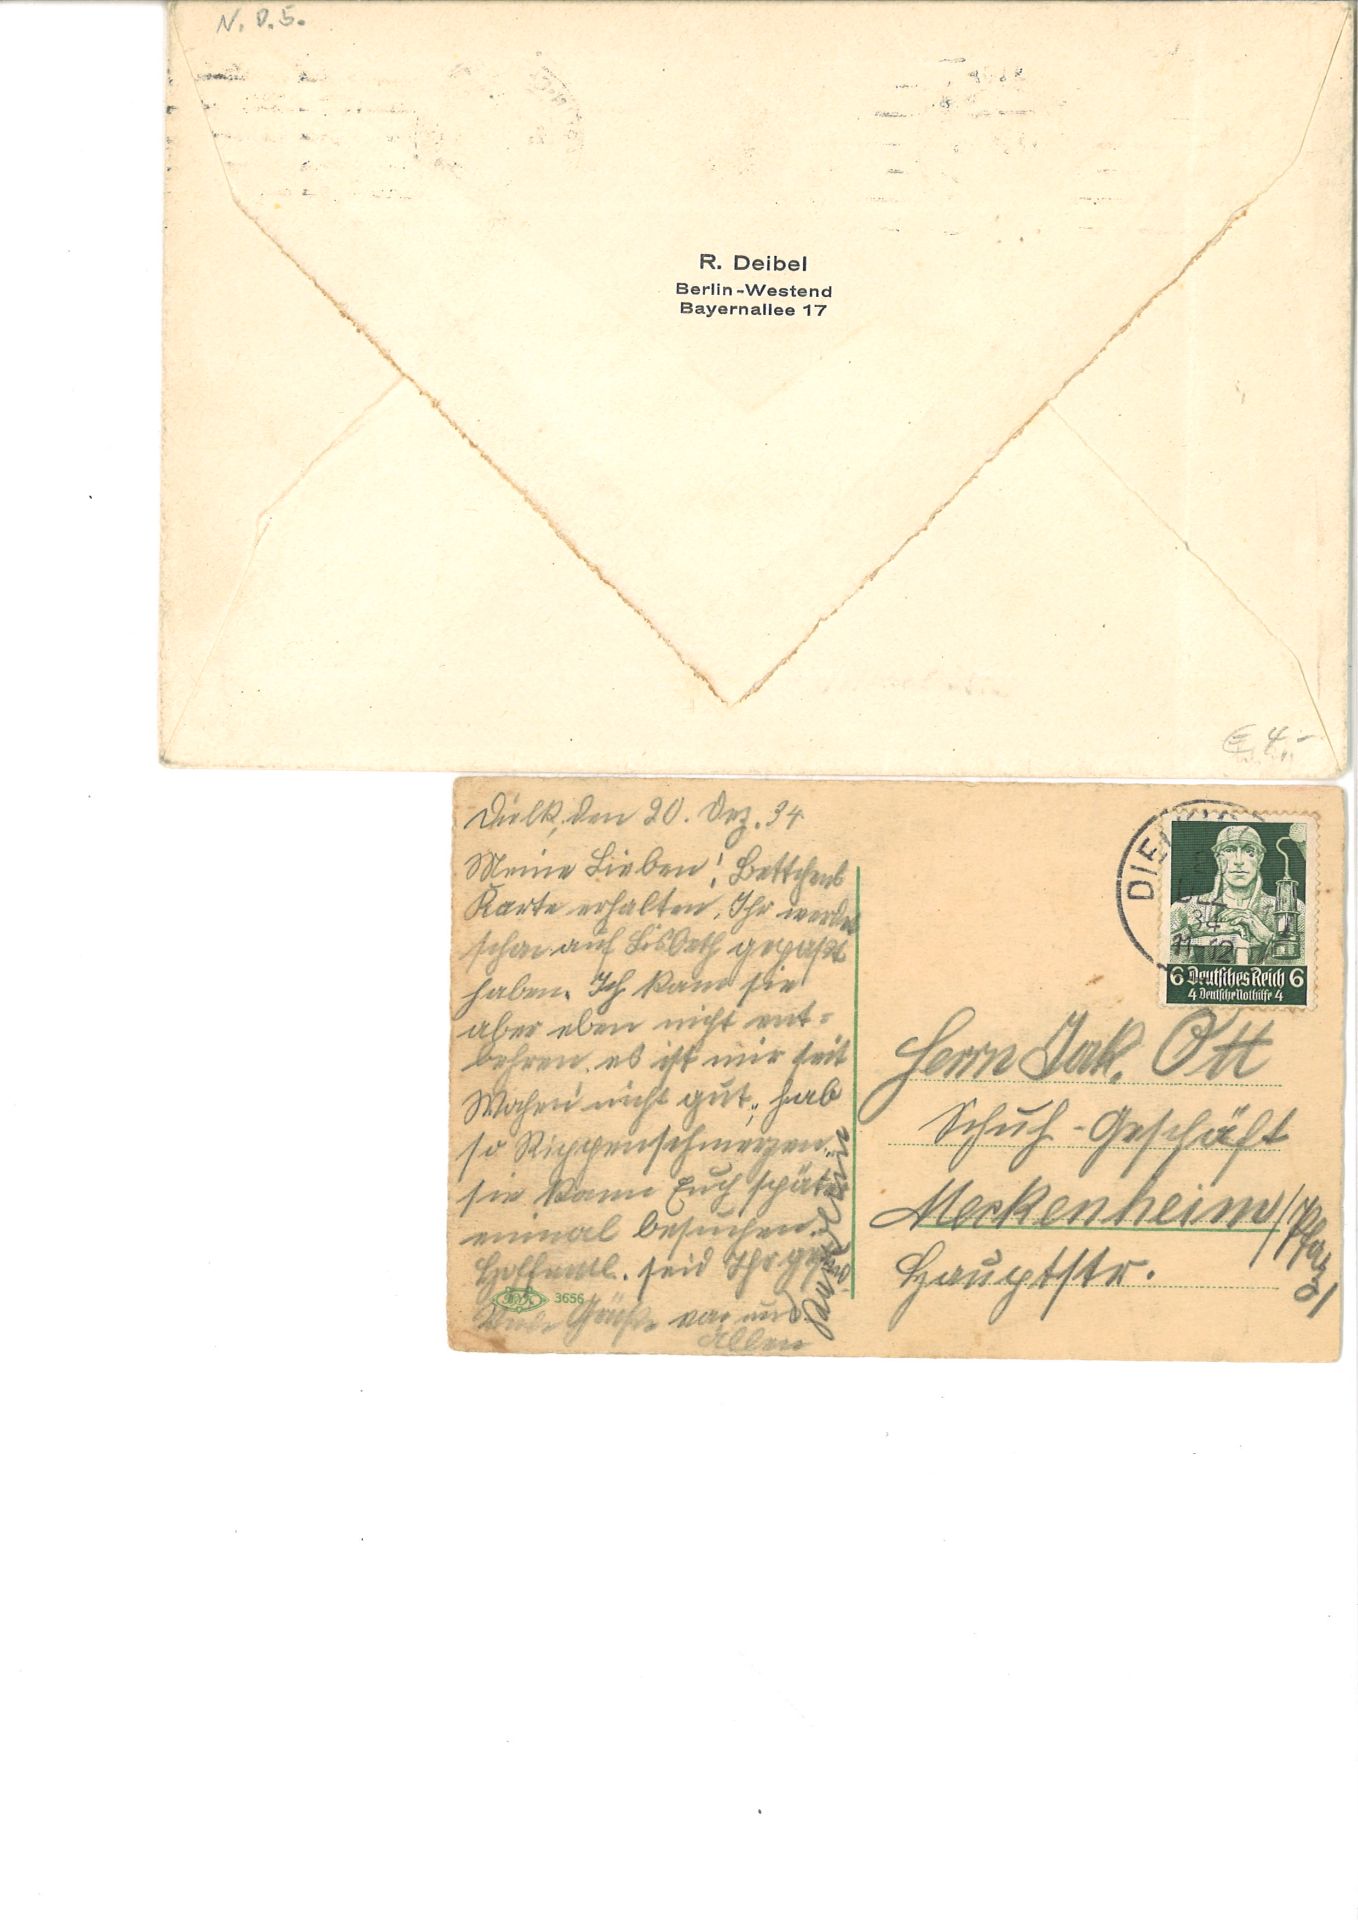 N. D. 5.
R. Deibel
Berlin-Westend
Bayernallee 17
4.-
den 20. Dez. 34
Meine Lieben! Bettchens
Karte erhalten. Ihr werdet
schon auf Lisbeth gepaßt
haben. Ich kann sie
aber eben nicht ent=
behren. es ist mir seit
Wochen nicht gut, hab
so Rippenschmerzen.
sie kann Euch später
einmal besuchen.
Hoffentl. seid Ihr gesund.
Viele Grüße von uns
Allen
3656
34
11-12
6 Deutsches Reich 6
4 Deutsche Nothilfe 4
Herrn Jak. Ott
Schuh-Geschäft
Meckenheim/Pfalz/
Hauptstr.